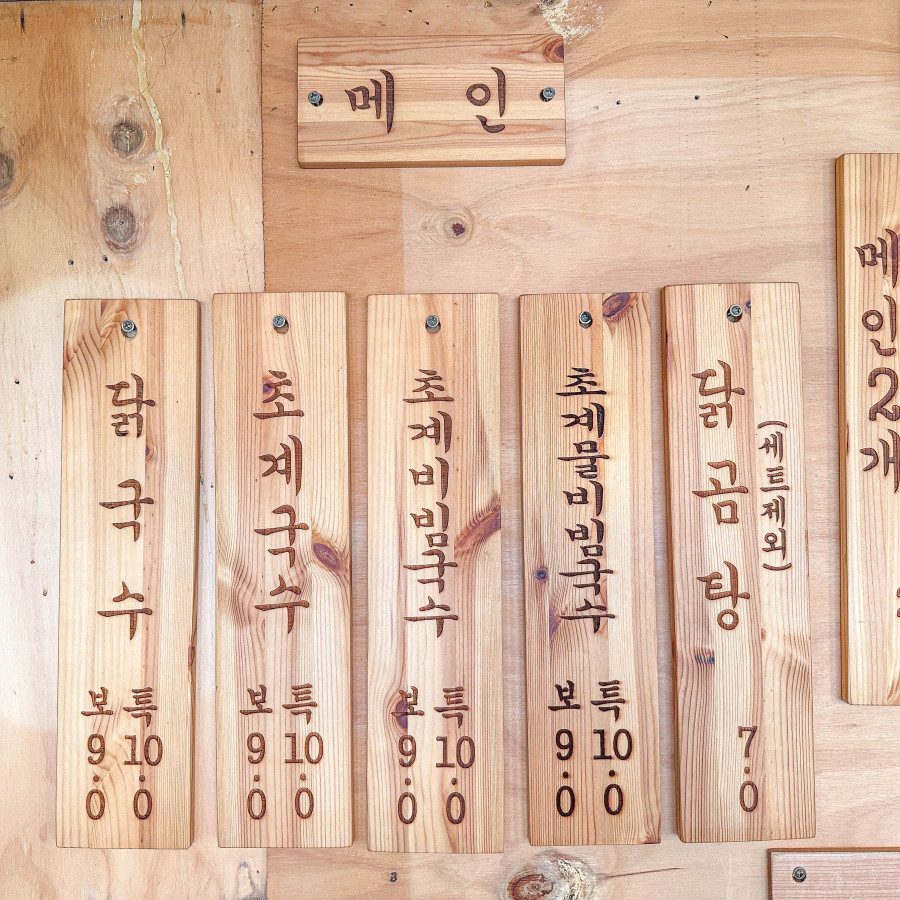 메인
닭국수
보 특
9.0 10.0
초계국수
보 특
9.0 10.0
초계비빔국수
보 특
9.0 10.0
초계물비빔국수
보 특
9.0 10.0
닭곰탕
(세트제외)
7.0
메인2개